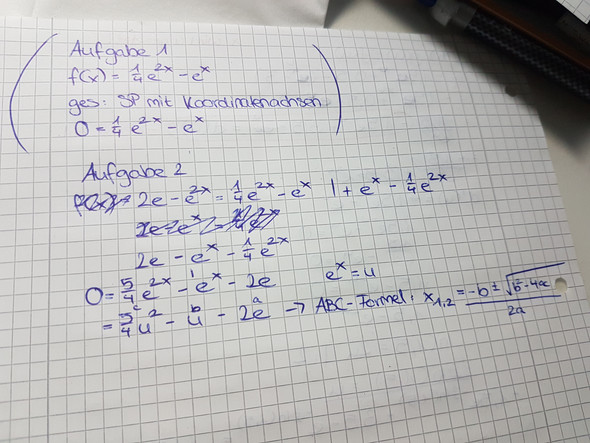 Aufgabe 1
f(x) = 1/4 e^2x - e^x
ges: SP mit Koordinatenachsen
0 = 1/4 e^2x - e^x
Aufgabe 2
2e - e^2x = 1/4 e^2x - e^x | + e^x - 1/4 e^2x
2e - e^x - 1/4 e^2x
0 = 5/4 e^2x - e^x - 2e e^x = u
= 5/4 u^2 - u - 2e → ABC-Formel: x1,2 = -b ± √b²-4ac / 2a